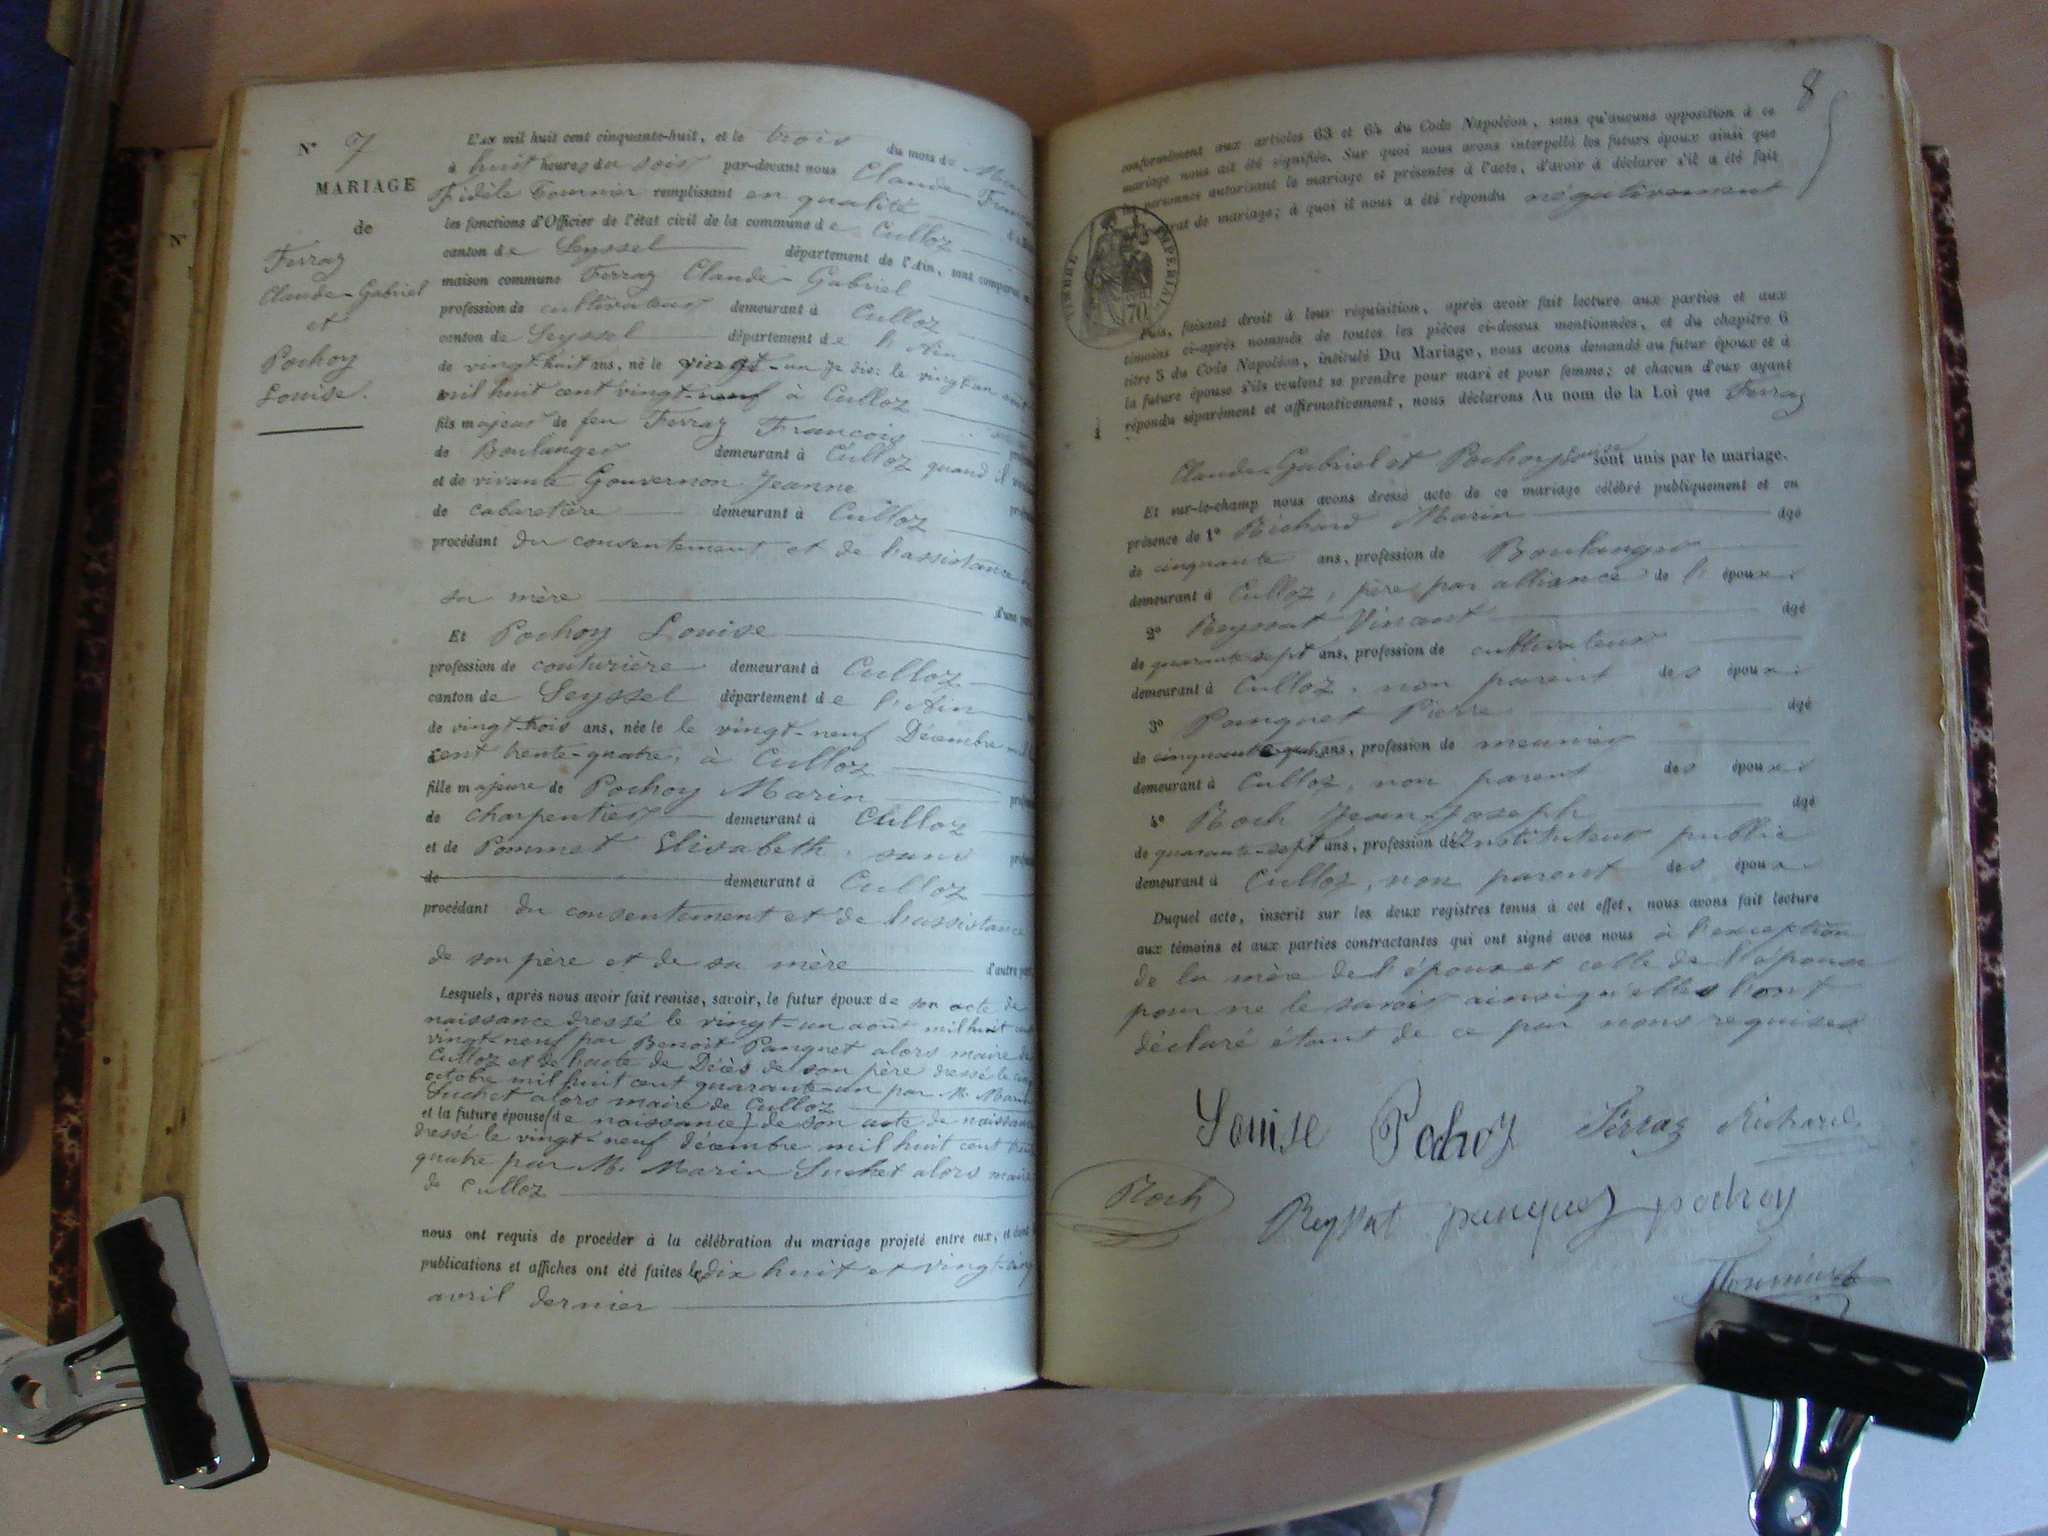 N° 7
MARIAGE
de
Ferraz
Claude-Gabriel
et
Pochoy
Louise.
L'an mil huit cent cinquante-huit, et le trois du mois de
à huit heures du soir par-devant nous Claude
Fidèle Fournier remplissant en qualité
les fonctions d'Officier de l'état civil de la commune de Culloz
canton de Seyssel département de l'Ain, sont comparus
maison commune Ferraz Claude-Gabriel
profession de cultivateur demeurant à Culloz
canton de Seyssel département de l'Ain
de vingt huit ans, né le vingt-un je dis: le vingt un
mil huit cent vingt-neuf à Culloz
fils majeur de feu Ferraz François
de Boulanger demeurant à Culloz quand il
et de vivante Gouvernon Jeanne
de cabaretière demeurant à Culloz
procédant du consentement et de l'assistance
sa mère d'une
Et Pochoy Louise
profession de couturière demeurant à Culloz
canton de Seyssel département de l'Ain
de vingt-trois ans, née le le vingt-neuf Décembre mil
cent trente-quatre, à Culloz
fille majeure de Pochoy Marin
de charpentier demeurant à Culloz
et de Pommet Elisabeth, sans
de demeurant à Culloz
procédant du consentement et de l'assistance
de son père et de sa mère d'autre part
Lesquels, après nous avoir fait remise, savoir, le futur époux de son acte de
naissance dressé le vingt-un août mil huit cent
vingt-neuf par Benoit Panquet alors maire de
Culloz et de l'acte de Décès de son père dressé le cinq
octobre mil huit cent quarante-un par M. Marin
Suchet alors maire de Culloz
et la future épouse (de naissance) de son acte de naissance
dressé le vingt-neuf décembre mil huit cent trente
quatre par M. Marin Suchet alors maire
de Culloz
nous ont requis de procéder à la célébration du mariage projeté entre eux, et dont
publications et affiches ont été faites le dix huit et vingt-cinq
avril dernier
8
conformément aux articles 63 et 64 du Code Napoléon, sans qu'aucune opposition à ce
mariage nous ait été signifiée. Sur quoi nous avons interpellé les futurs époux ainsi que
les personnes autorisant le mariage et présentes à l'acte, d'avoir à déclarer s'il a été fait
contrat de mariage; à quoi il nous a été répondu négativement
TIMBRE IMPERIAL
70
Puis, faisant droit à leur réquisition, après avoir fait lecture aux parties et aux
témoins ci-après nommés de toutes les pièces ci-dessus mentionnées, et du chapitre 6
titre 5 du Code Napoléon, intitulé Du Mariage, nous avons demandé au futur époux et à
la future épouse s'ils veulent se prendre pour mari et pour femme; et chacun d'eux ayant
répondu séparément et affirmativement, nous déclarons Au nom de la Loi que Ferraz
Claude-Gabriel et Pochoy Louise sont unis par le mariage.
Et sur-le-champ nous avons dressé acte de ce mariage célébré publiquement et en
présence de 1° Richard Marin âgé
de cinquante ans, profession de Boulanger
demeurant à Culloz, père par alliance de l'époux:
2° Reyssat Vincent âgé
de quarante sept ans, profession de cultivateur
demeurant à Culloz, non parent des époux:
3° Panquet Pierre âgé
de cinquante ans, profession de meunier
demeurant à Culloz, non parent des époux:
4° Roch Jean-Joseph âgé
de quarante-sept ans, profession d'Instituteur public
demeurant à Culloz, non parent des époux:
Duquel acte, inscrit sur les deux registres tenus à cet effet, nous avons fait lecture
aux témoins et aux parties contractantes qui ont signé avec nous à l'exception
de la mère de l'époux et celle de l'épouse
pour ne le savoir ainsi qu'elles l'ont
déclaré étant de ce par nous requises
Louise Pochoy Ferraz Richard
Roch Reyssat panquet pochoy
Fournier